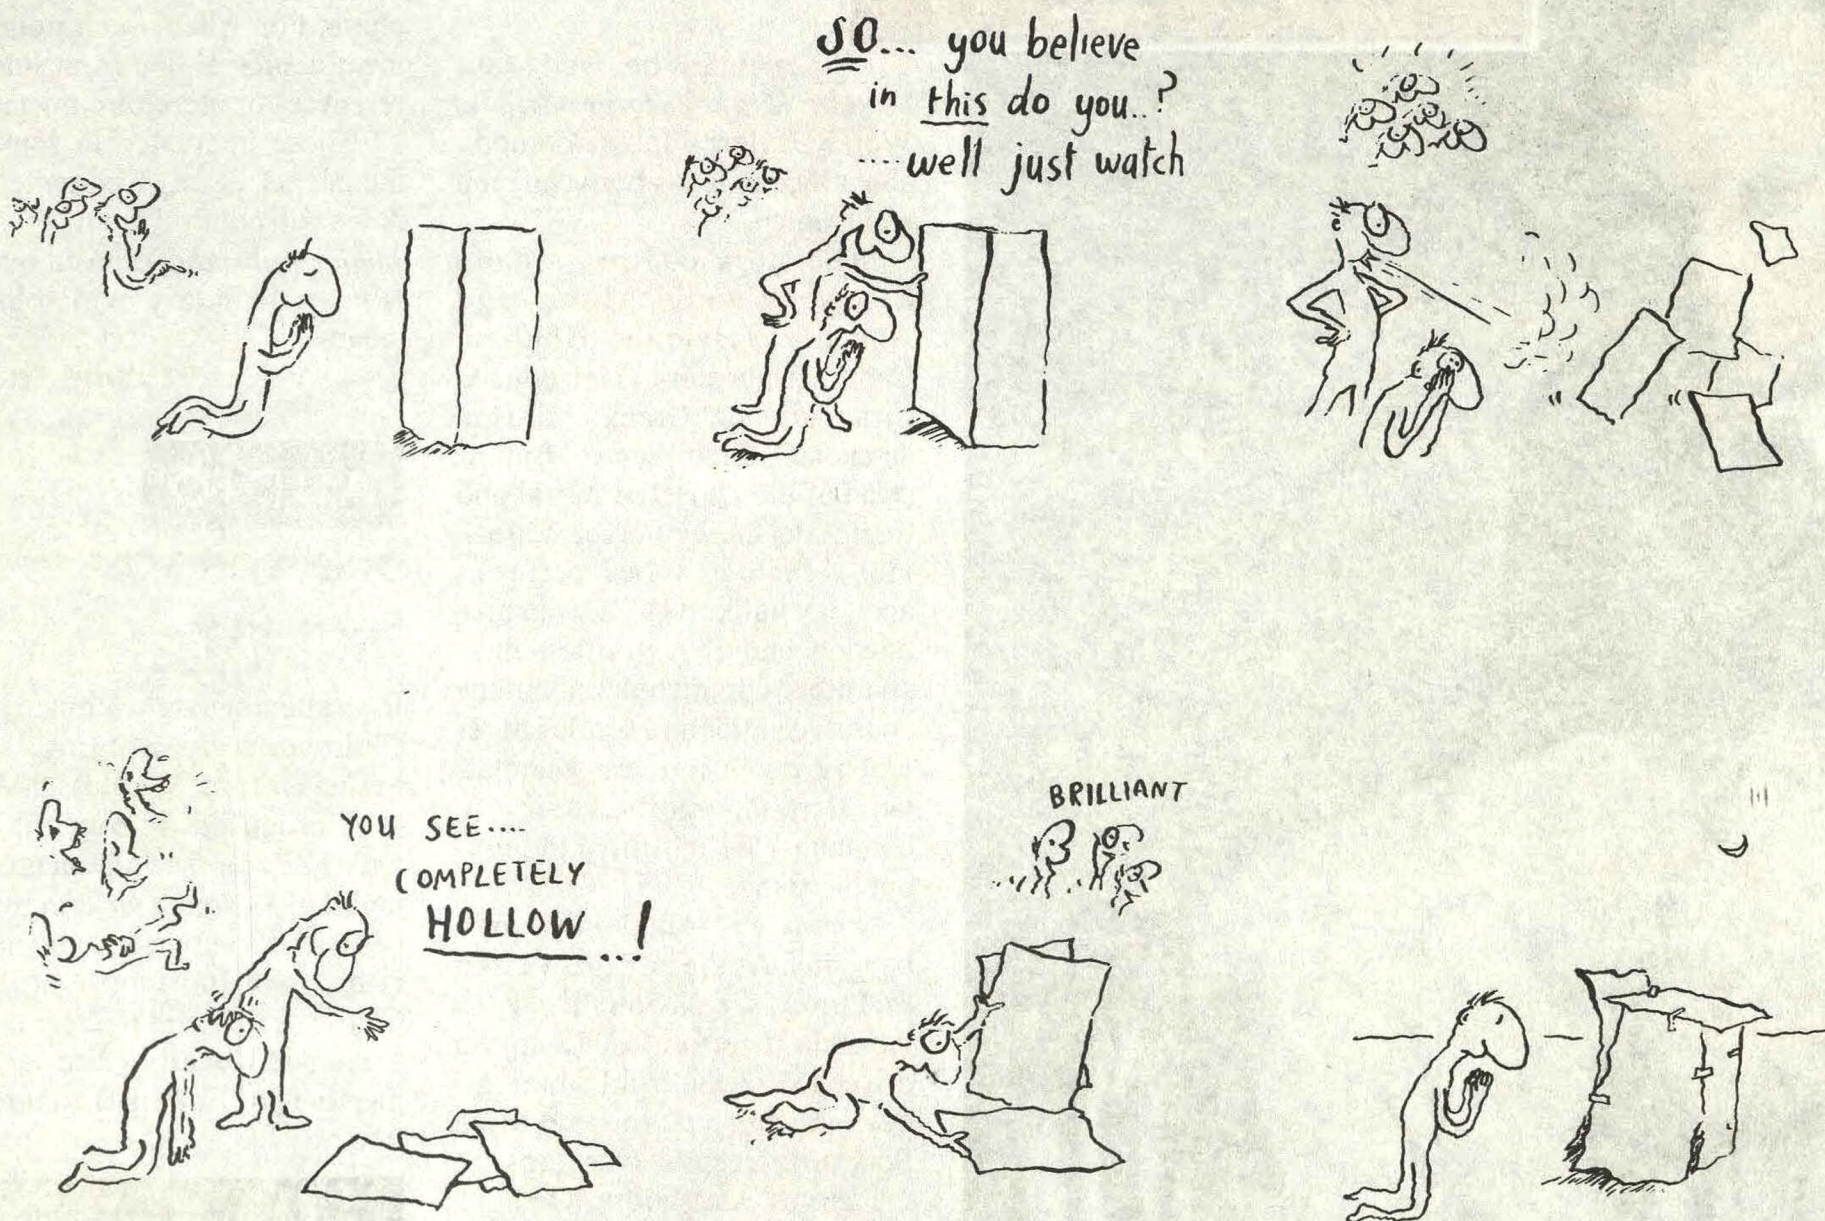 SO... you believe
in this do you..?
....well just watch
YOU SEE....
COMPLETELY
HOLLOW...!
BRILLIANT